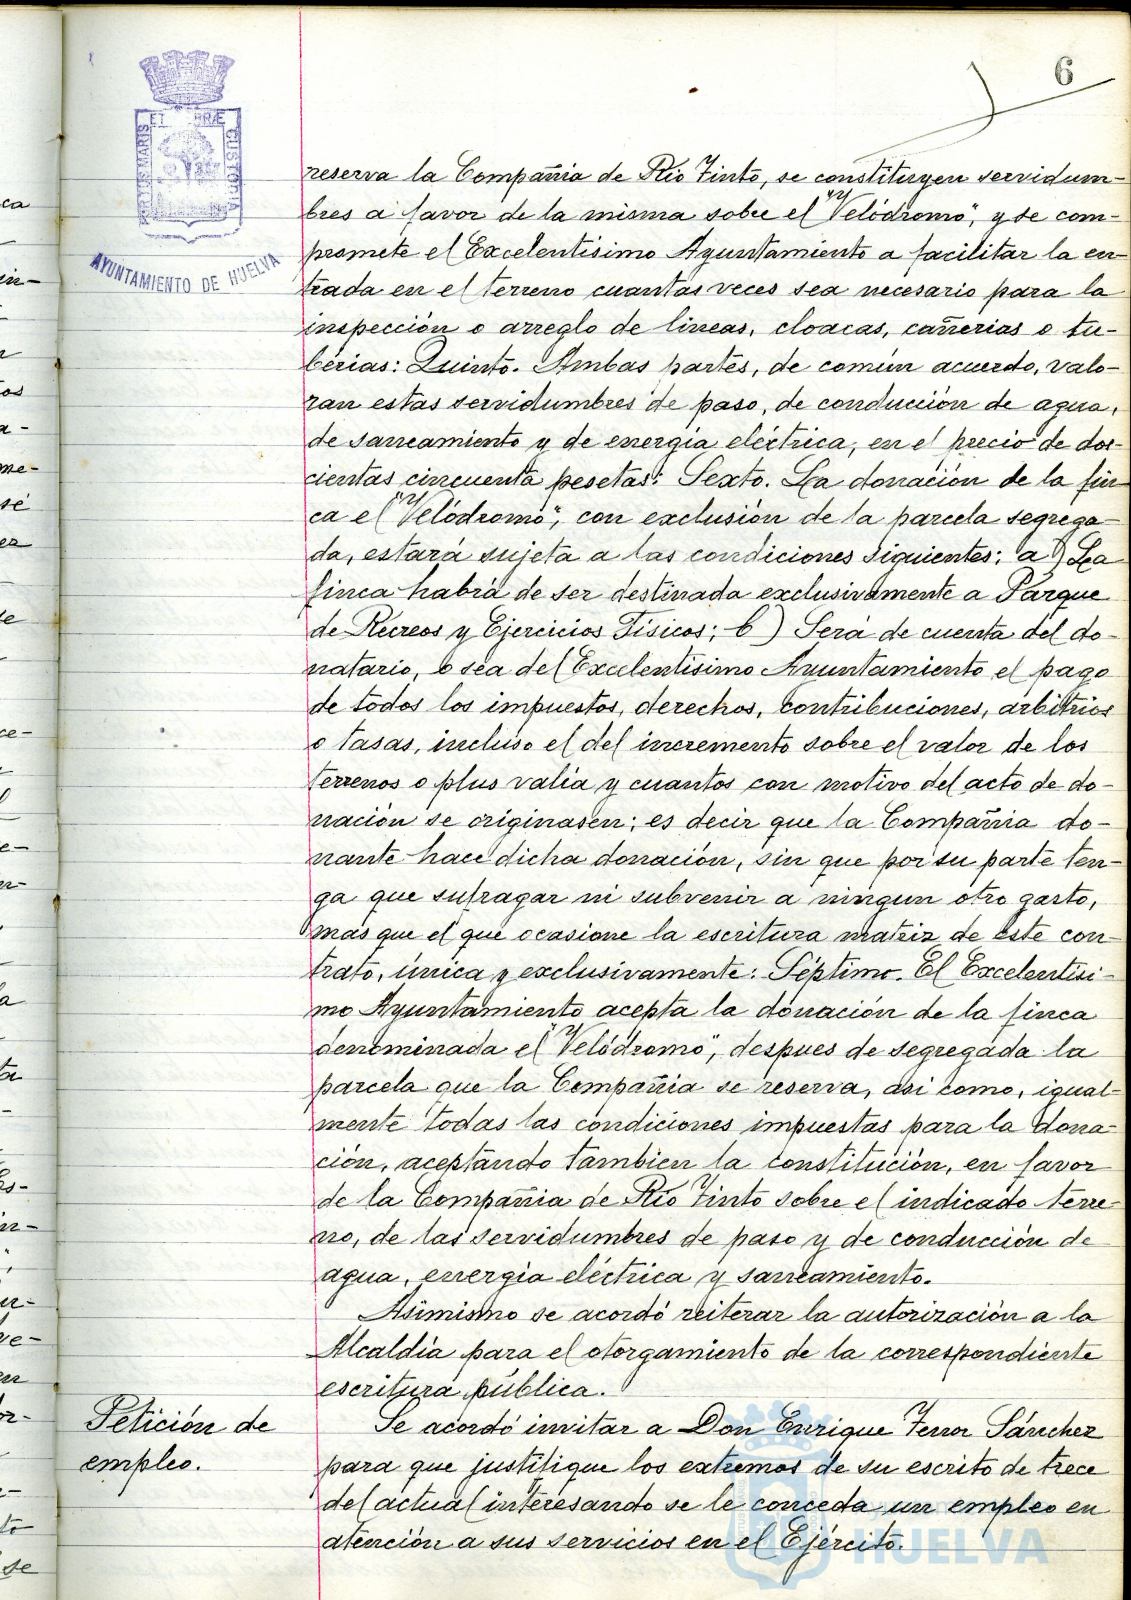 6
PORTUS MARIS ET TERRÆ CUSTODIA
AYUNTAMIENTO DE HUELVA
reserva la Compañia de Rio Tinto, se constituyen servidum-
bres a favor de la misma sobre el "Velódromo", y se com-
promete el Excelentísimo Ayuntamiento a facilitar la en-
trada en el terreno cuantas veces sea necesario para la
inspección o arreglo de lineas, cloacas, cañerias o tu-
berias: Quinto. Ambas partes, de común acuerdo, valo-
ran estas servidumbres de paso, de conducción de agua,
de saneamiento y de energia eléctrica, en el precio de dos-
cientas cincuenta pesetas: Sexto. La donación de la fin-
ca el "Velódromo", con exclusión de la parcela segrega-
da, estará sujeta a las condiciones siguientes: a) La
finca habrá de ser destinada exclusivamente a Parque
de Recreos y Ejercicios Fisicos; b) Será de cuenta del do-
natario, o sea del Excelentísimo Ayuntamiento el pago
de todos los impuestos, derechos, contribuciones, arbitrios
o tasas, incluso el del incremento sobre el valor de los
terrenos o plus valia y cuantos con motivo del acto de do-
nación se originasen; es decir que la Compañia do-
nante hace dicha donación, sin que por su parte ten-
ga que sufragar ni subvenir a ningun otro gasto,
mas que el que ocasione la escritura matriz de este con-
trato, única y exclusivamente: Séptimo. El Excelentisi-
mo Ayuntamiento acepta la donación de la finca
denominada el "Velódromo", despues de segregada la
parcela que la Compañia se reserva, asi como, igual-
mente todas las condiciones impuestas para la dona-
ción, aceptando tambien la constitución, en favor
de la Compañia de Rio Tinto sobre el indicado terre-
no, de las servidumbres de paso y de conducción de
agua, energia eléctrica y saneamiento.
Asimismo se acordó reiterar la autorización a la
Alcaldia para el otorgamiento de la correspondiente
escritura pública.
Petición de
empleo.
Se acordó invitar a Don Enrique Ferror Sánchez
para que justifique los extremos de su escrito de trece
del actual interesando se le conceda un empleo en
atención a sus servicios en el Ejército.
HUELVA